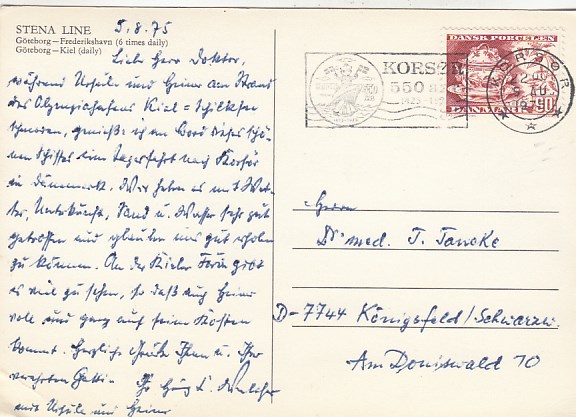 STENA LINE
Göteborg – Frederikshavn (6 times daily)
Göteborg – Kiel (daily)
5.8.75
Lieber Herr Doktor,
während Ursula und Heiner am Strand
des Olympiahafens Kiel = Schilksee
schmoren, genieße ich an Bord dieses schö-
nen Schiffes eine Tagesfahrt nach Korsör
in Dänemark. Wir haben es mit Wet-
ter, Unterkunft, Sand u. Wasser sehr gut
getroffen und glauben uns gut erholen
zu können. An der Kieler Förde gibt
es viel zu sehen, so daß auch Heiner
voll und ganz auf seine Kosten
kommt. Herzliche Grüße Ihnen u. Ihrer
verehrten Gattin Ihr
mit Ursula und Heiner
DANSK PORCELÆN
DANMARK 90
KORSØR
550
1425
KORSØR
Herrn
Dr. med. T. Tancke
D-7744 Königsfeld/Schwarzw.
Am Doniswald 10